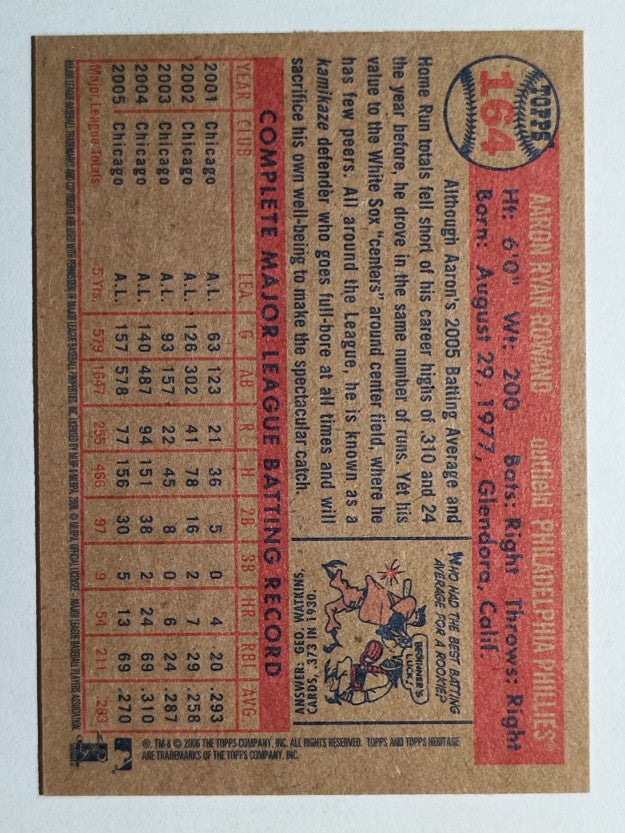 TOPPS
164
AARON RYAN ROWAND outfield PHILADELPHIA PHILLIES®
Ht: 6'0" Wt: 200 Bats: Right Throws: Right
Born: August 29, 1977, Glendora, Calif.
Although Aaron's 2005 Batting Average and
Home Run totals fell short of his career highs of .310 and 24
the year before, he drove in the same number of runs. Yet his
value to the White Sox "centers" around center field, where he
has few peers. All around the League, he is known as a
kamikaze defender who goes full-bore at all times and will
sacrifice his own well-being to make the spectacular catch.
WHO HAD THE BEST BATTING
AVERAGE FOR A ROOKIE?
BEGINNER'S
LUCK
ANSWER: GEO. WATKINS,
CARD'S, .373 IN 1930.
COMPLETE MAJOR LEAGUE BATTING RECORD
YEAR CLUB LEA G AB R H 2B 3B HR RBI AVG
2001 Chicago A.L. 63 123 21 36 5 0 4 20 .293
2002 Chicago A.L. 126 302 41 78 16 2 7 29 .258
2003 Chicago A.L. 93 157 22 45 8 0 6 24 .287
2004 Chicago A.L. 140 487 94 151 38 2 24 69 .310
2005 Chicago A.L. 157 578 77 156 30 5 13 69 .270
Major League Totals 5 Yrs. 579 1647 255 466 97 9 54 211 .283
®, TM & © 2006 THE TOPPS COMPANY, INC. ALL RIGHTS RESERVED. TOPPS AND TOPPS HERITAGE
ARE TRADEMARKS OF THE TOPPS COMPANY, INC.
MAJOR LEAGUE BASEBALL TRADEMARKS AND COPYRIGHTS ARE USED WITH PERMISSION OF MAJOR LEAGUE BASEBALL PROPERTIES, INC. LICENSED BY MLBP © MLBPA, 2006. © MLBPA, OFFICIAL LICENSEE - MAJOR LEAGUE BASEBALL PLAYERS ASSOCIATION